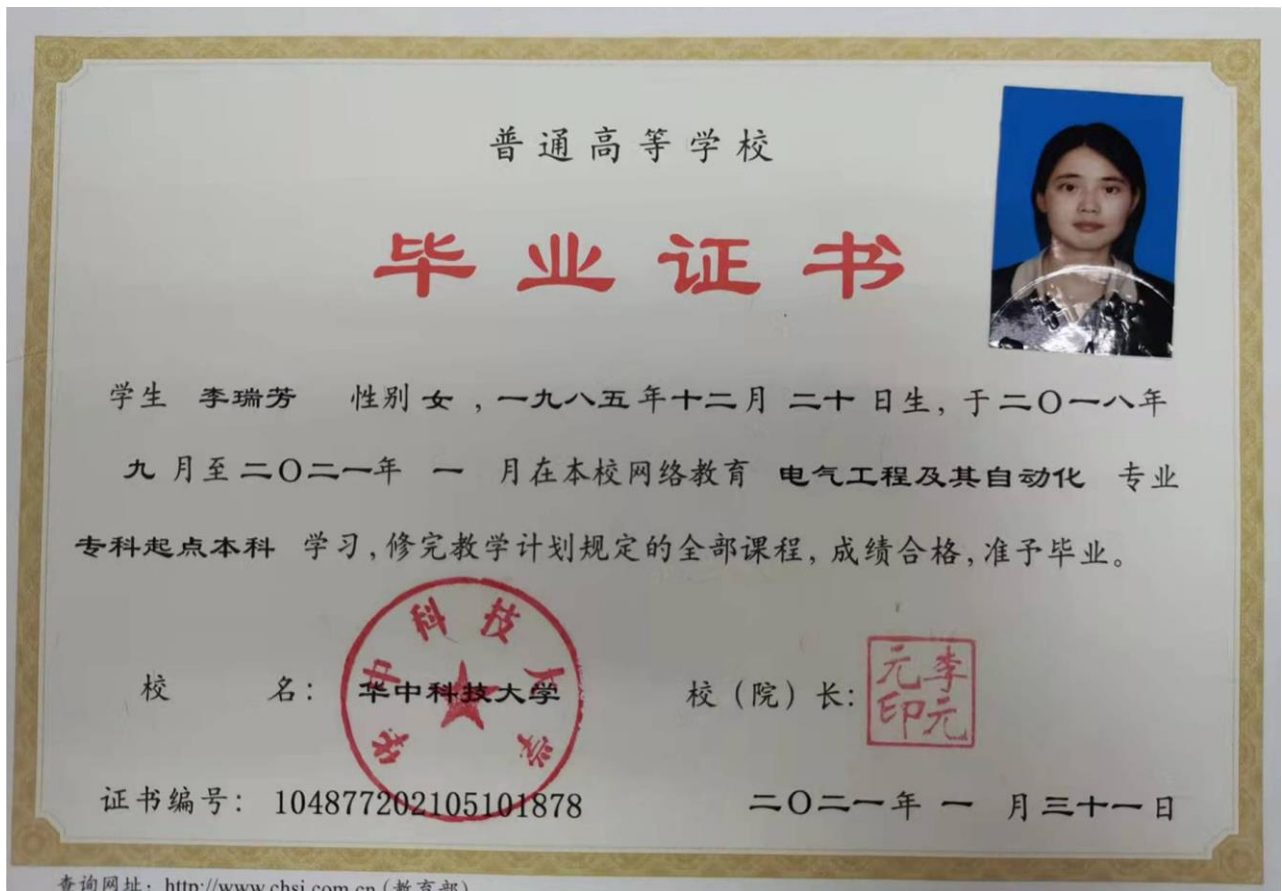 普通高等学校
毕业证书
学生 李瑞芳 性别 女 , 一九八五年十二月 二十 日生, 于二〇一八年
九 月至二〇二一年 一 月在本校网络教育 电气工程及其自动化 专业
专科起点本科 学习, 修完教学计划规定的全部课程, 成绩合格, 准予毕业。
华中科技大学
校 名: 华中科技大学 校（院）长: 李元元印
证书编号: 104877202105101878 二〇二一年 一 月三十一日
查询网址: http://www.chsi.com.cn (教育部)